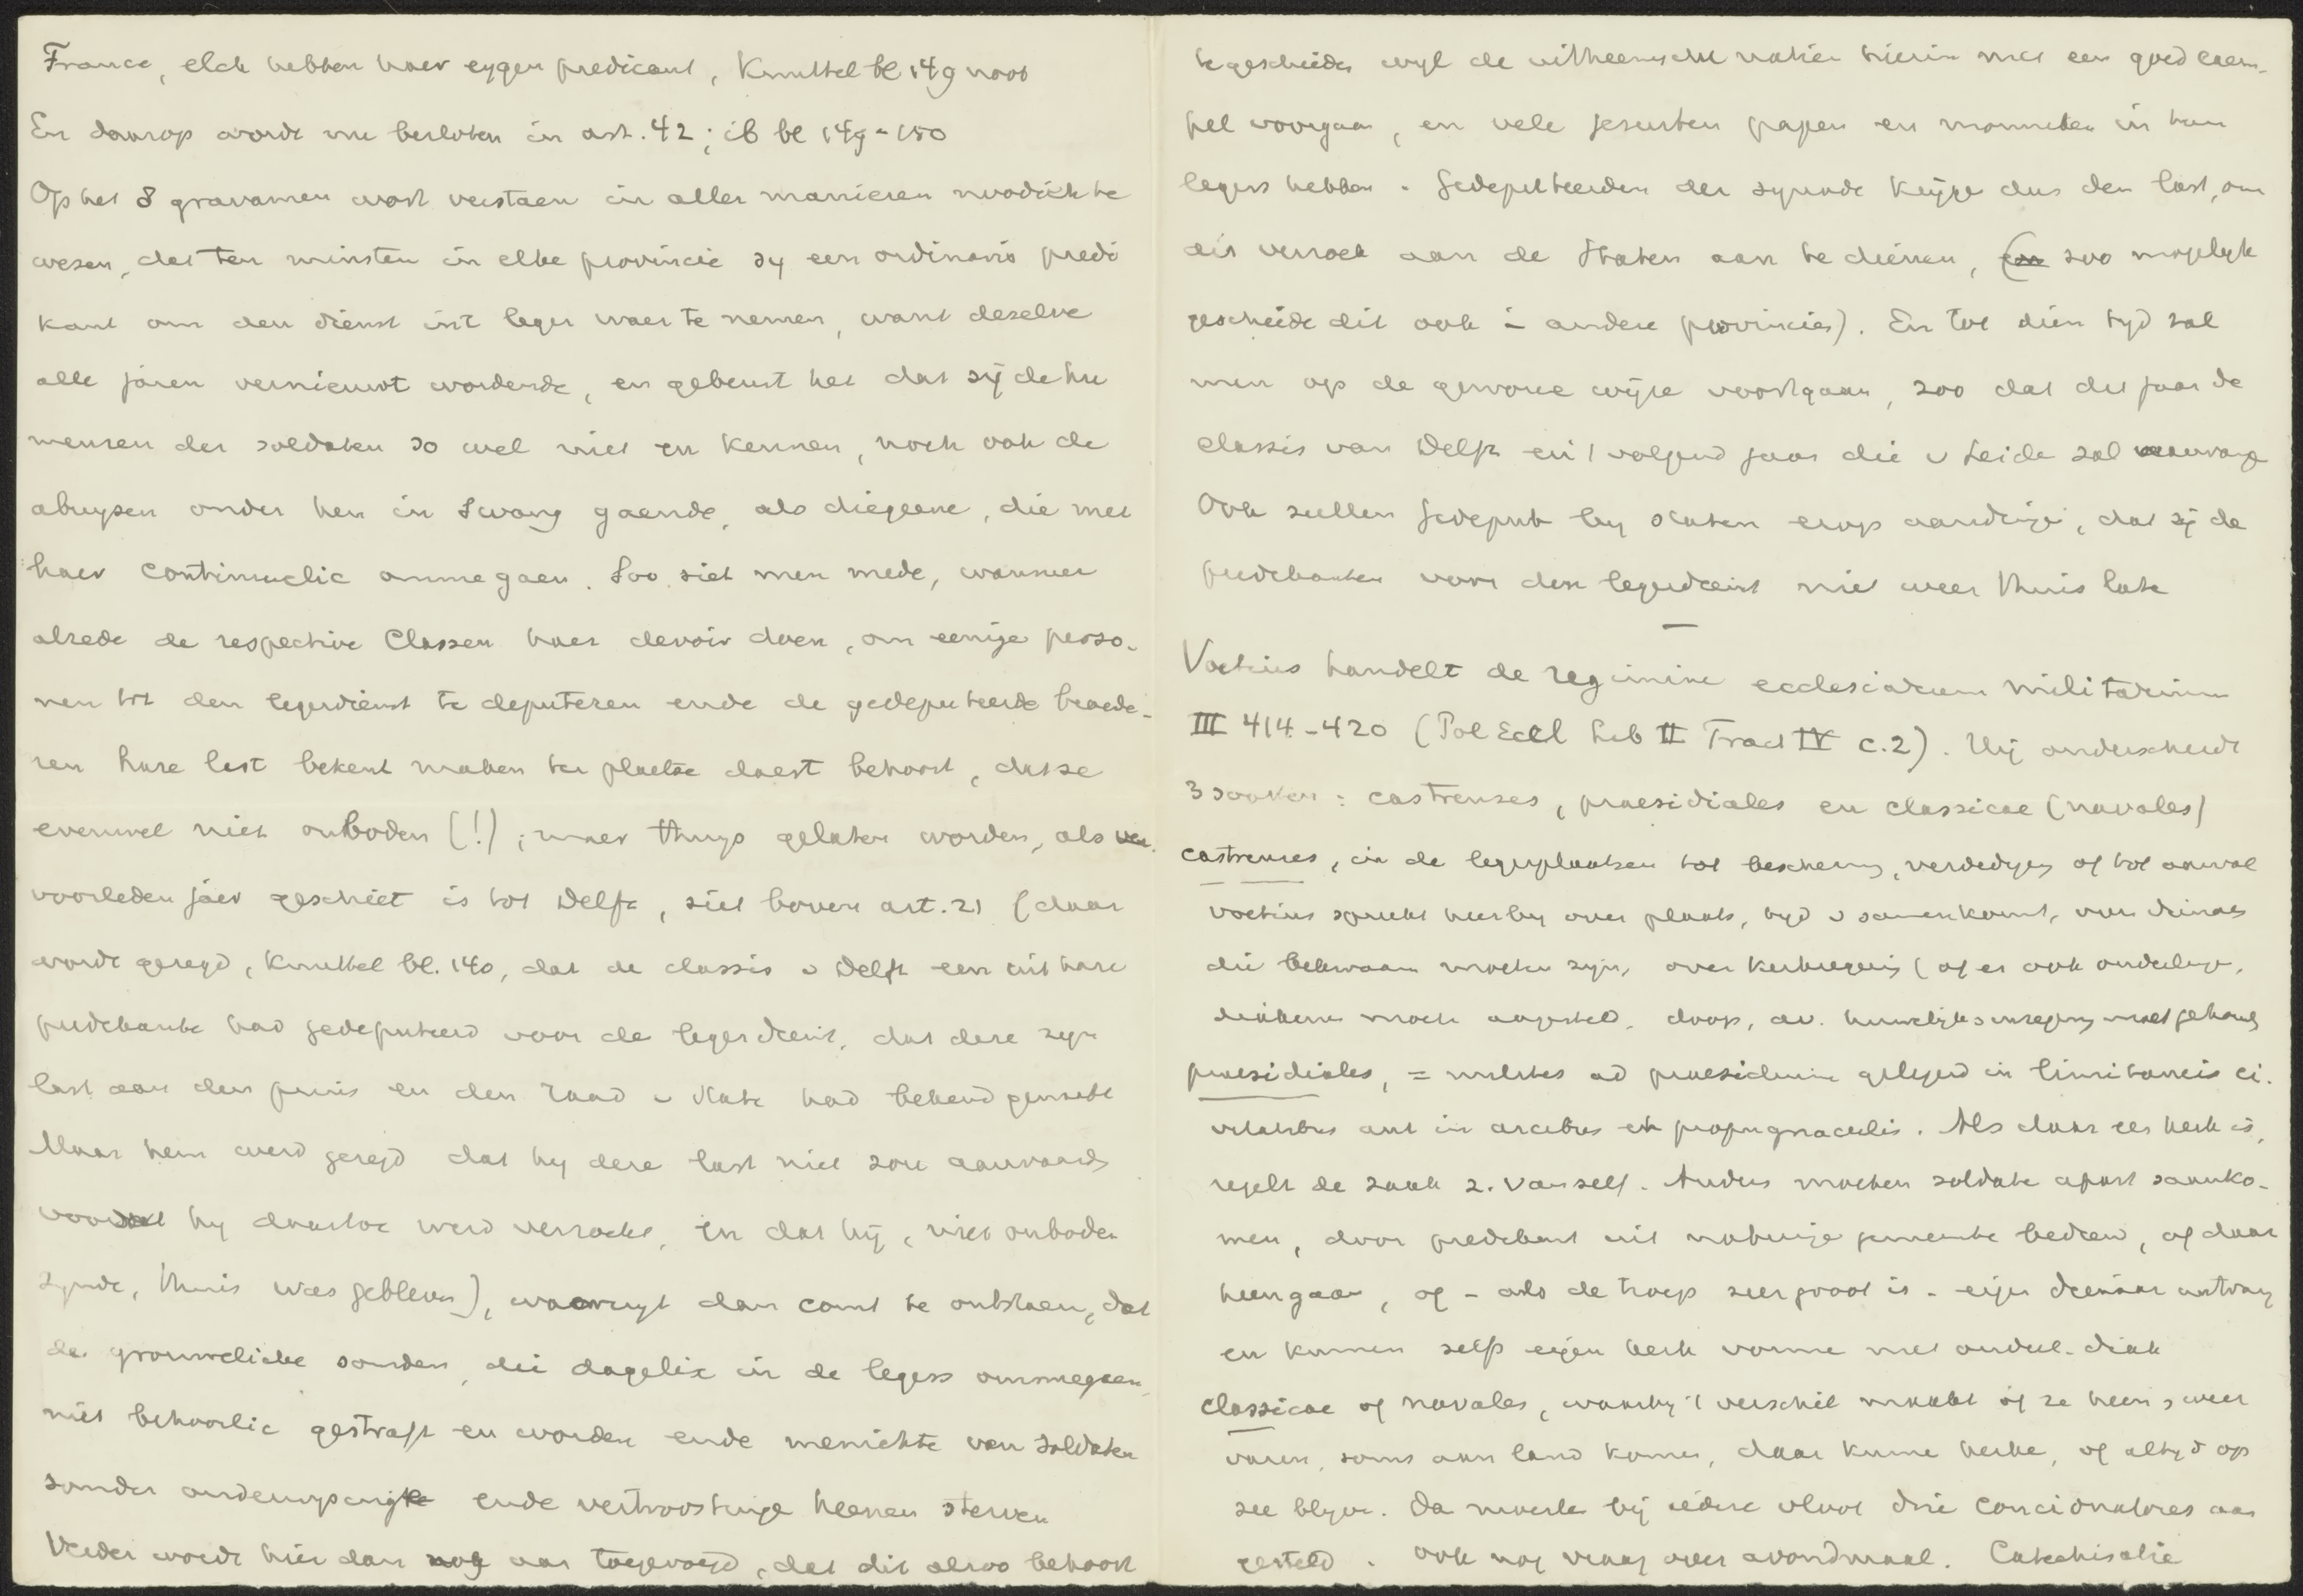 France, elck hebben haer eygen predicant, Knuttel bl 149 noot
En daarop wordt nu besloten in art. 42; ib bl 149-150
Op het 8 gravamen wort verstaen in aller manieren noodich te
wesen, dat ten minsten in elke provincie sy een ordinaris predi
kant om den dienst in't leger waer te nemen, want deselve
alle jaren vernieuwt wordende, en gebeurt het dat sij de hu
meuren der soldaten so wel niet en kennen, noch ook de
abuysen onder hen in swang gaende, als diegeene, die met
haer continuelic ommegaen. Soo siet men mede, wanneer
alrede de respective Classen haer devoir doen, om eenige perso-
nen tot den legerdienst te deputeren ende de gedeputeerde broede-
ren hare last bekent maken ter plaetse daert behoort, datse
evenwel niet ontboden (!); maer thuys gelaten worden, als
voorleden jaer geschiet is tot Delft, siet boven art. 21 (daar
wordt gezegd, Knuttel bl. 140, dat de classis v Delft een uit hare
predikante had gedeputeerd voor de legerdienst, dat deze zijn
last aan den prins en den raad v State had bekend gemaakt
Maar hem werd gezegd dat hy deze last niet zou aanvaarde
voordat hy daartoe werd verzocht, en dat hij, niet ontboden
zynde, thuis was gebleven), waeruyt dan comt te ontstaen, dat
de grouwelicke sonden, die dagelix in de legers ommegaen,
niet behoorlic gestraft en worden ende menichte van soldaten
sonder onderwysinge ende vertroostinge heenen sterven
Verder wordt hier dan nog aan toegevoegd, dat dit alsoo behoort
te geschieden wyl de uitheemsche natien hierin met een goed exem-
pel voorgaan, en vele jesuiten papen en monneken in hun
legers hebben. Gedeputeerden der synode krijge dus den last, om
dit verzoek aan de Staten aan te dienen, (en zoo mogelyk
geschiede dit ook in andere provincies). En tot dien tyd zal
men op de gewone wijze voortgaan, zoo dat dit jaar de
classis van Delft en 't volgend jaar die v Leide zal
Ook zullen gedeput by Staten erop aandringe, dat zij de
predikanten voor den legerdienst niet weer thuis late
Voetius handelt de regimine ecclesiarum militarium
III 414-420 (Pol Eccl Lib II Tract IV c.2). Hij onderscheidt
3 soorten: castrenses, praesidiales en classicae (navales)
castrenses, in de legerplaatsen tot bescherm, verdediging of tot aanval
Voetius spreekt hierby over plaats, tyd v samenkomst, van dienaes
die bekwaam moeten zyn, over kerkregering (of er ook ouderlinge,
diakene moete aangesteld, doop, av. huwelyksinzegening moet gehoude
praesidiales, = milites ad praesidium gelegerd in limitaneis ci.
vitatibus aut in arcibus et propugnaculis. Als daar een kerk is,
regelt de zaak z. vanzelf. Anders moeten soldate apart saamko-
men, door predikant uit naburige gemeente bediend, of daar
heengaan, of - als de troep zeer groot is - eigen dienaar ontvang
en kunnen zelfs eigen kerk vorme met ouderl. diak
classicae of navales, waarby 't verschil maakt of ze heen en weer
varen, soms aan land komen, daar kunne kerke, of altyd op
zee blyve. Da moeten bij iedere vloot drie concionatores aan
gesteld. Ook nog vraag over avondmaal. Catechisatie